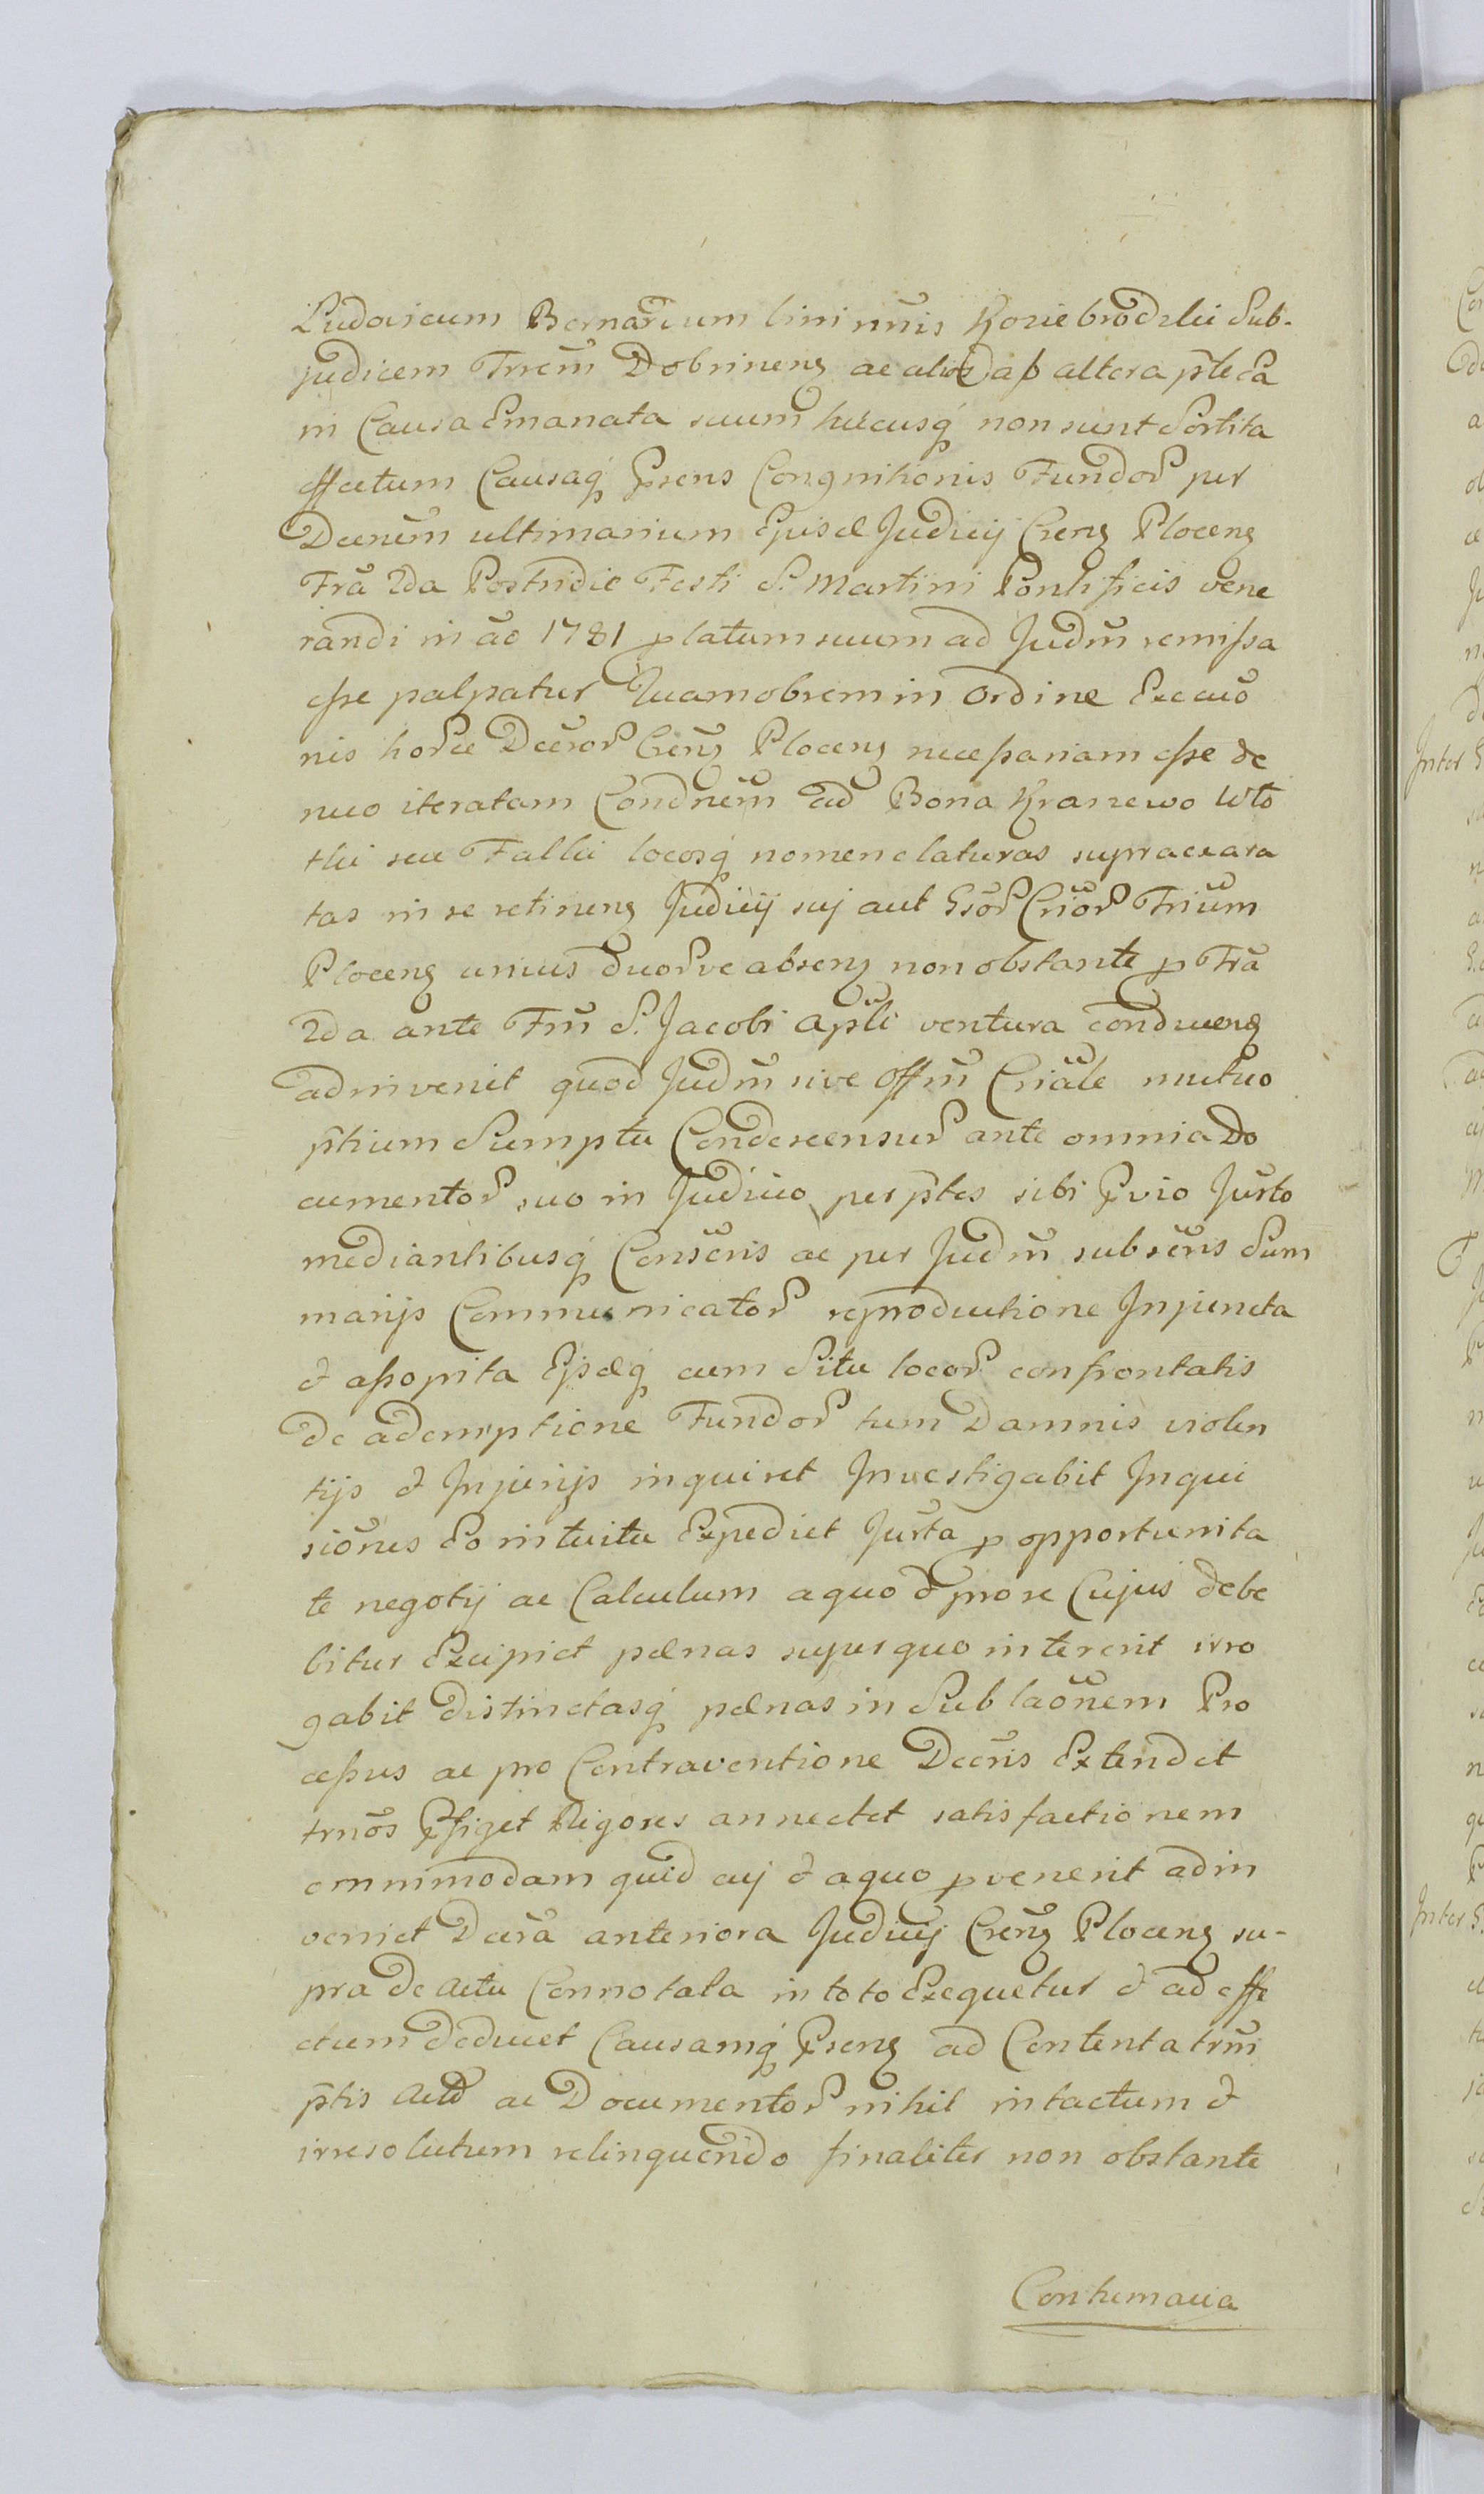 Ludovicum Bernardum bini nn̄is Koziebrodzki Sub-
judicem Trrēm Dobrinens ac alios ab altera pte ea
in Causa Emanata suum hucusq non sunt Sortita
effectum Causaq Prsens Congnitionis Fundor per
Decrēum ultimarium Ejusd Judicij Crens Plocens
Frā 2da Postridie Festi S. Martini Pontificis vene
randi in aō 1781 platum suum ad Judm̄ remissa
esse palpatur Quamobrem in Ordine Execuō
nis horce Decrōr Crens Plocens necessariam esse de
nuo iteratam Condnēm ad Bona Kraszewo Wto
ski seu Falki locosq nomenclaturas supraexara
tas in se retinens Judicij sui aut Gsōr Criōr Triūm
Plocens unius duorve absens non obstante p Frā
2da ante Fm̄ S. Jacobi Apli ventura conducens
adinvenit quod Judm̄ sive Offm̄ Criāle mutuo
ptium Sumptu Condescensur ante omnia Do
cumentor suo in Judicio per ptes sibi Prvio Jurto
mediantibusq Consēris ac per Judm̄ subsēns Sum
marijs Communicator reproductione Injuncta
& assopita Ejsdq cum Situ locor confrontatis
De ademptione Fundor tum Damnis violen
tijs & Injurijs inquiret Investigabit Inqui
siōnes Eo intuitu Expediet Jurta p opportunita
te negotij ac Calculum a quo & pro re Cujus debe
bitur Excipiet pænas super quo intererit irro
gabit distinctasq pænas in Sublaōnem Pro
cessus ac pro Contraventione Decris Extendet
trnōs Prfiget Rigores annectet satisfactionem
ommimodam quid cuj & a quo pvenerit adin
veniet Decrā anteriora Judicij Crens Plocens su-
pra de actu Connotata in toto Exequetur & ad effe
ctum deducet Causamq Prsens ad Contenta trm̄
ptis Actor ac Documentor nihil intactum &
irresolutum relinquendo finaliter non obstante
Contumacia